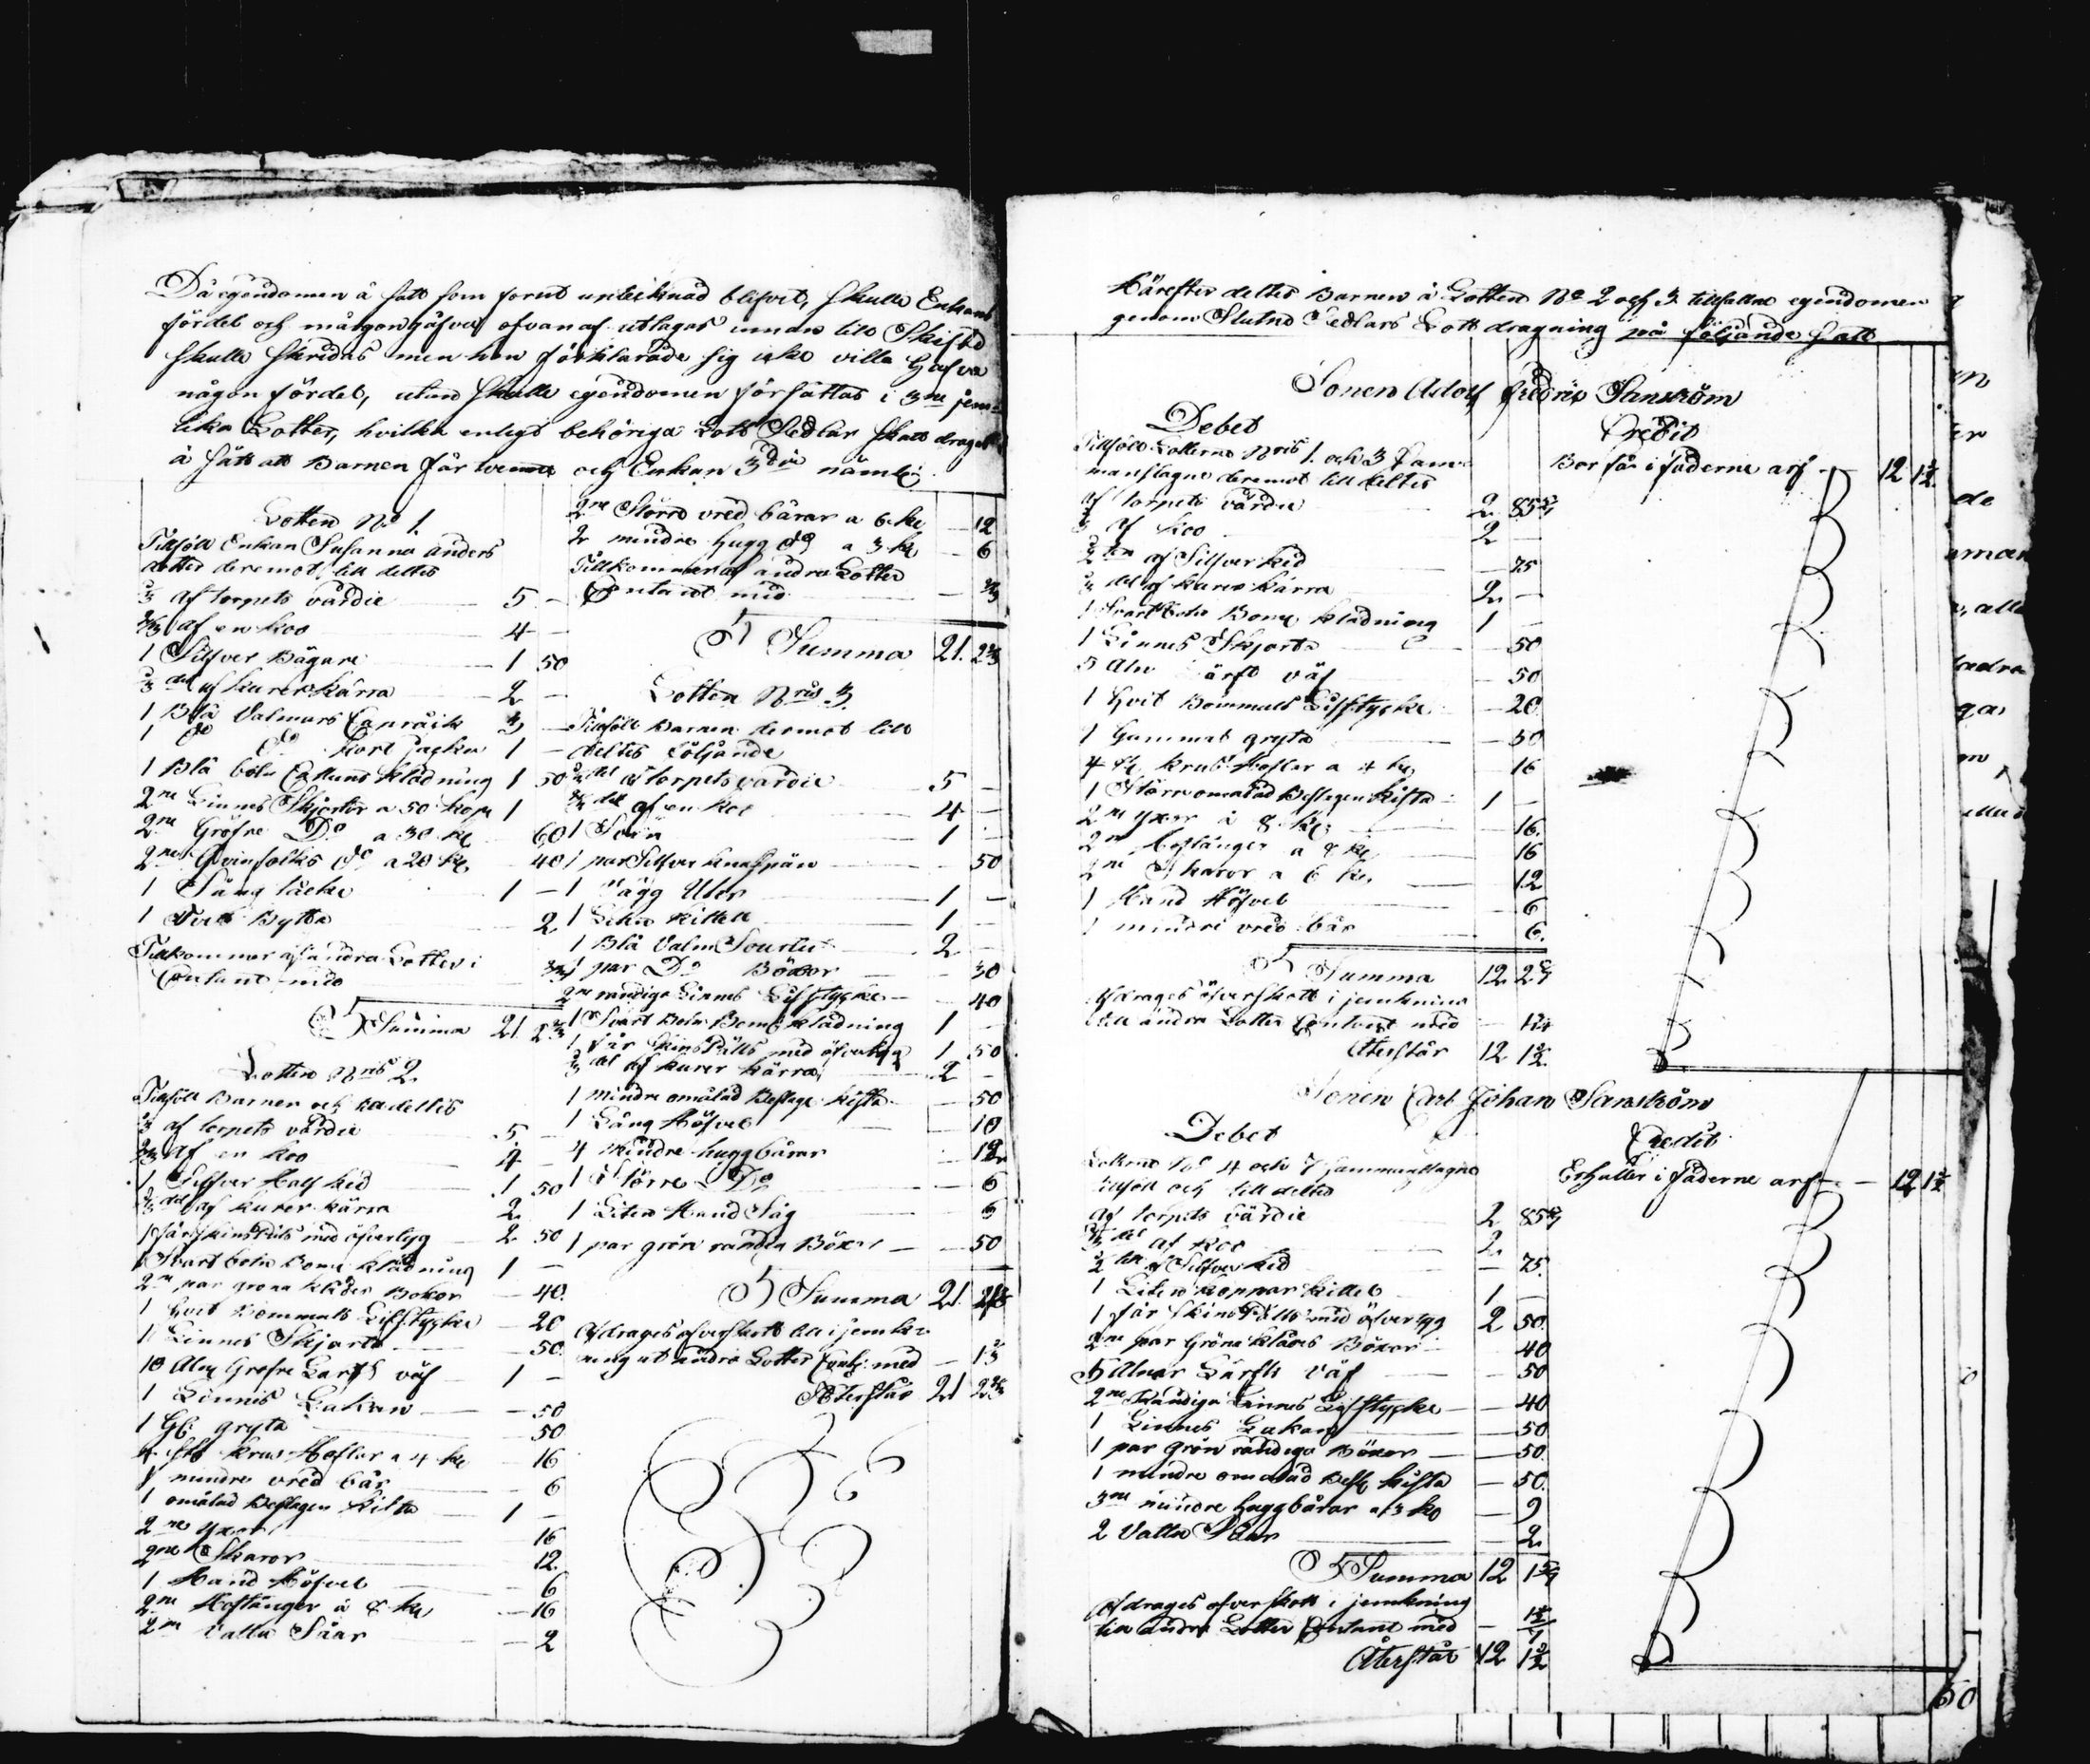 Då egendomen å sätt som förut antecknad blifvit, skulle Enkans
fördel och morgongåfva ofvanaf uttagas innan till Skifte
skulle skridas men hon förklarade sig icke villa hafva
någon fördel, utan skulle egendomen författas i 3ne jem-
lika Lotter, hvilka enligt behöriga Lott Sedlar skall dragas
å sätt att Barnen får tvenne och Enkan 3die nämli:
Lotten No 1.
Tillföll Enkan Susanna Anders
dotter deremot till deltes
1/3 af torpets värdie 5 -
2/3 af en koo 4 -
1 Silfver Bägare 1 50
1/3 del af kurer kärra 2 -
1 Blå Valmars 3 -
1 do do kort Jacka 1 -
1 Blå boln Cattuns klädning 1 50
2ne Linnes Skjortor a 50 kop 1
2ne Gröfre Do a 30 ke 60
2ne Qvinfolks do a 20 ke 40
1 Säng täcke 1 -
1 Bytta 2
Tillkommer af andra Lotter i
Contant med
Summa 21 2 2/3
Lotten Nris 2
Tillföll Barnen och till deltes
1/3 af torpets värdie 5 -
2/3 af en koo 4 -
1 Silfver Half ked 1 50
1/3 del af kurer kärra 2
1 fårskins Päls med öfvertyg 2 50
1 Svart boln Bom klädning 1 -
2ne par gröna klädes Böxor 40
1 hvit Bommuls Lifstycke 20
1 Linnes Skjorta 50
10 Aln Grofre Lärfts väf 1 -
1 Linnes Lakan 50
1 Gl: gryta 50
4 st krus Hoflar a 4 ke 16
1 mindre vred bår 6
1 omålad Beslagen kista 1 -
2ne yxor 16
2ne Skaror 12
1 Hand Höfvel 6
2ne Hoftänger à 8 ke 16
2ne Vattu Såar 2
2ne Större vred bårar a 6 ke 12
2 mindre hugg do a 3 ke 6
Tillkommer af andra Lotter
Contant med 2/3
Summa 21. 2 2/3
Lotten Nris 3
Tillföll Barnen deremot till
deltes följande
1/3 del af torpets värdie 5 -
2/3 del af en koo 4 -
1 1 -
1 par Silfver knäspän 50
1 Vägg Uhr 1 -
1 Liten kittell 1 -
1 Blå Valm Sourtut 2 -
1 par Do Böxor 30
2ne randiga Linnes Lifstycke 40
1 Svart Boln Bom: klädning 1 -
1 får skins Päls med öfvertyg 1 50
1/3 del af kurer kärra 2 -
1 mindre omålad Beslage kista 50
1 Lång Höfvel 10
4 mindre huggbårar 12
1 Större Do 6
1 Liten Hand Såg 5
1 par grön randia Böxor 50
Summa 21.
Afdrages öfverskott till i jemk-
ning at andra Lotter Cont: med 1 2/3
Återstår 21 2 2/3
Härefter deltes Barnen å Lotten No 2 och 3 tillfallne egendomen
genom Slutna Sedlars Lott dragning på följande sätt
Sonen Adolf Fredric Sanström
Debet
Credit
Tillföll Lotterne Nris 1. och 3 Sam-
manslagne deremot till deltes
Bör få i fäderne arf 12 1 1/2
af torpets värdie 2 85 5/7
1/3 af koo 2 -
1/2 ten af Silfver ked 75
1/3 del af kurer kärra 2 -
1 Svart boln Bom klädning 1 -
1 Linnes Skjorta 50
5 Aln Lärft väf 50
1 hvit Bommuls Lifstycke 20
1 Gammal gryta 50
4 st krus Hoflar a 4 ke 16
1 Större omålad Beslagen kista 1 -
2ne yxor à 8 ke 16
2ne hoftänger a 8 ke 16
2ne Skaror a 6 ke 12
1 Hand Höfvel 6
1 mindre vred bår 6
Summa 12 2 5/7
Afdrages öfverskott i jemkning
till andra Lotter Contant med
Återstår 12 1 1/2
Sonen Carl Johan Sanström
Debet
Credit
Lotterne No 4 och 7 Sammanslagne
tillföll och till deltes
Erhåller i fäderne arf 12 1 1/2
af torpets värdie 2 85 5/7
del af koo 2.
1/2 ten af Silfver ked 75
1 Liten koppar kittel 1
1 får skins Päls med öfvertyg 2 50
2ne par Gröna klädes Böxor 40
5 Alnar Lärfts väf 50
2ne Randiga Linnes Lifstycke 40
1 Linnes Lakan 50
1 par grön randiga Böxor 50
1 mindre omålad Besl kista 50
3ne mindre huggbårar a 3 ko 9
2 Vattu Såar 2
Summa 12 1 5/7
Afdrages öfverskott i jemkning
till andra Lotter Contant med
Återstår 12 1 1/2
60